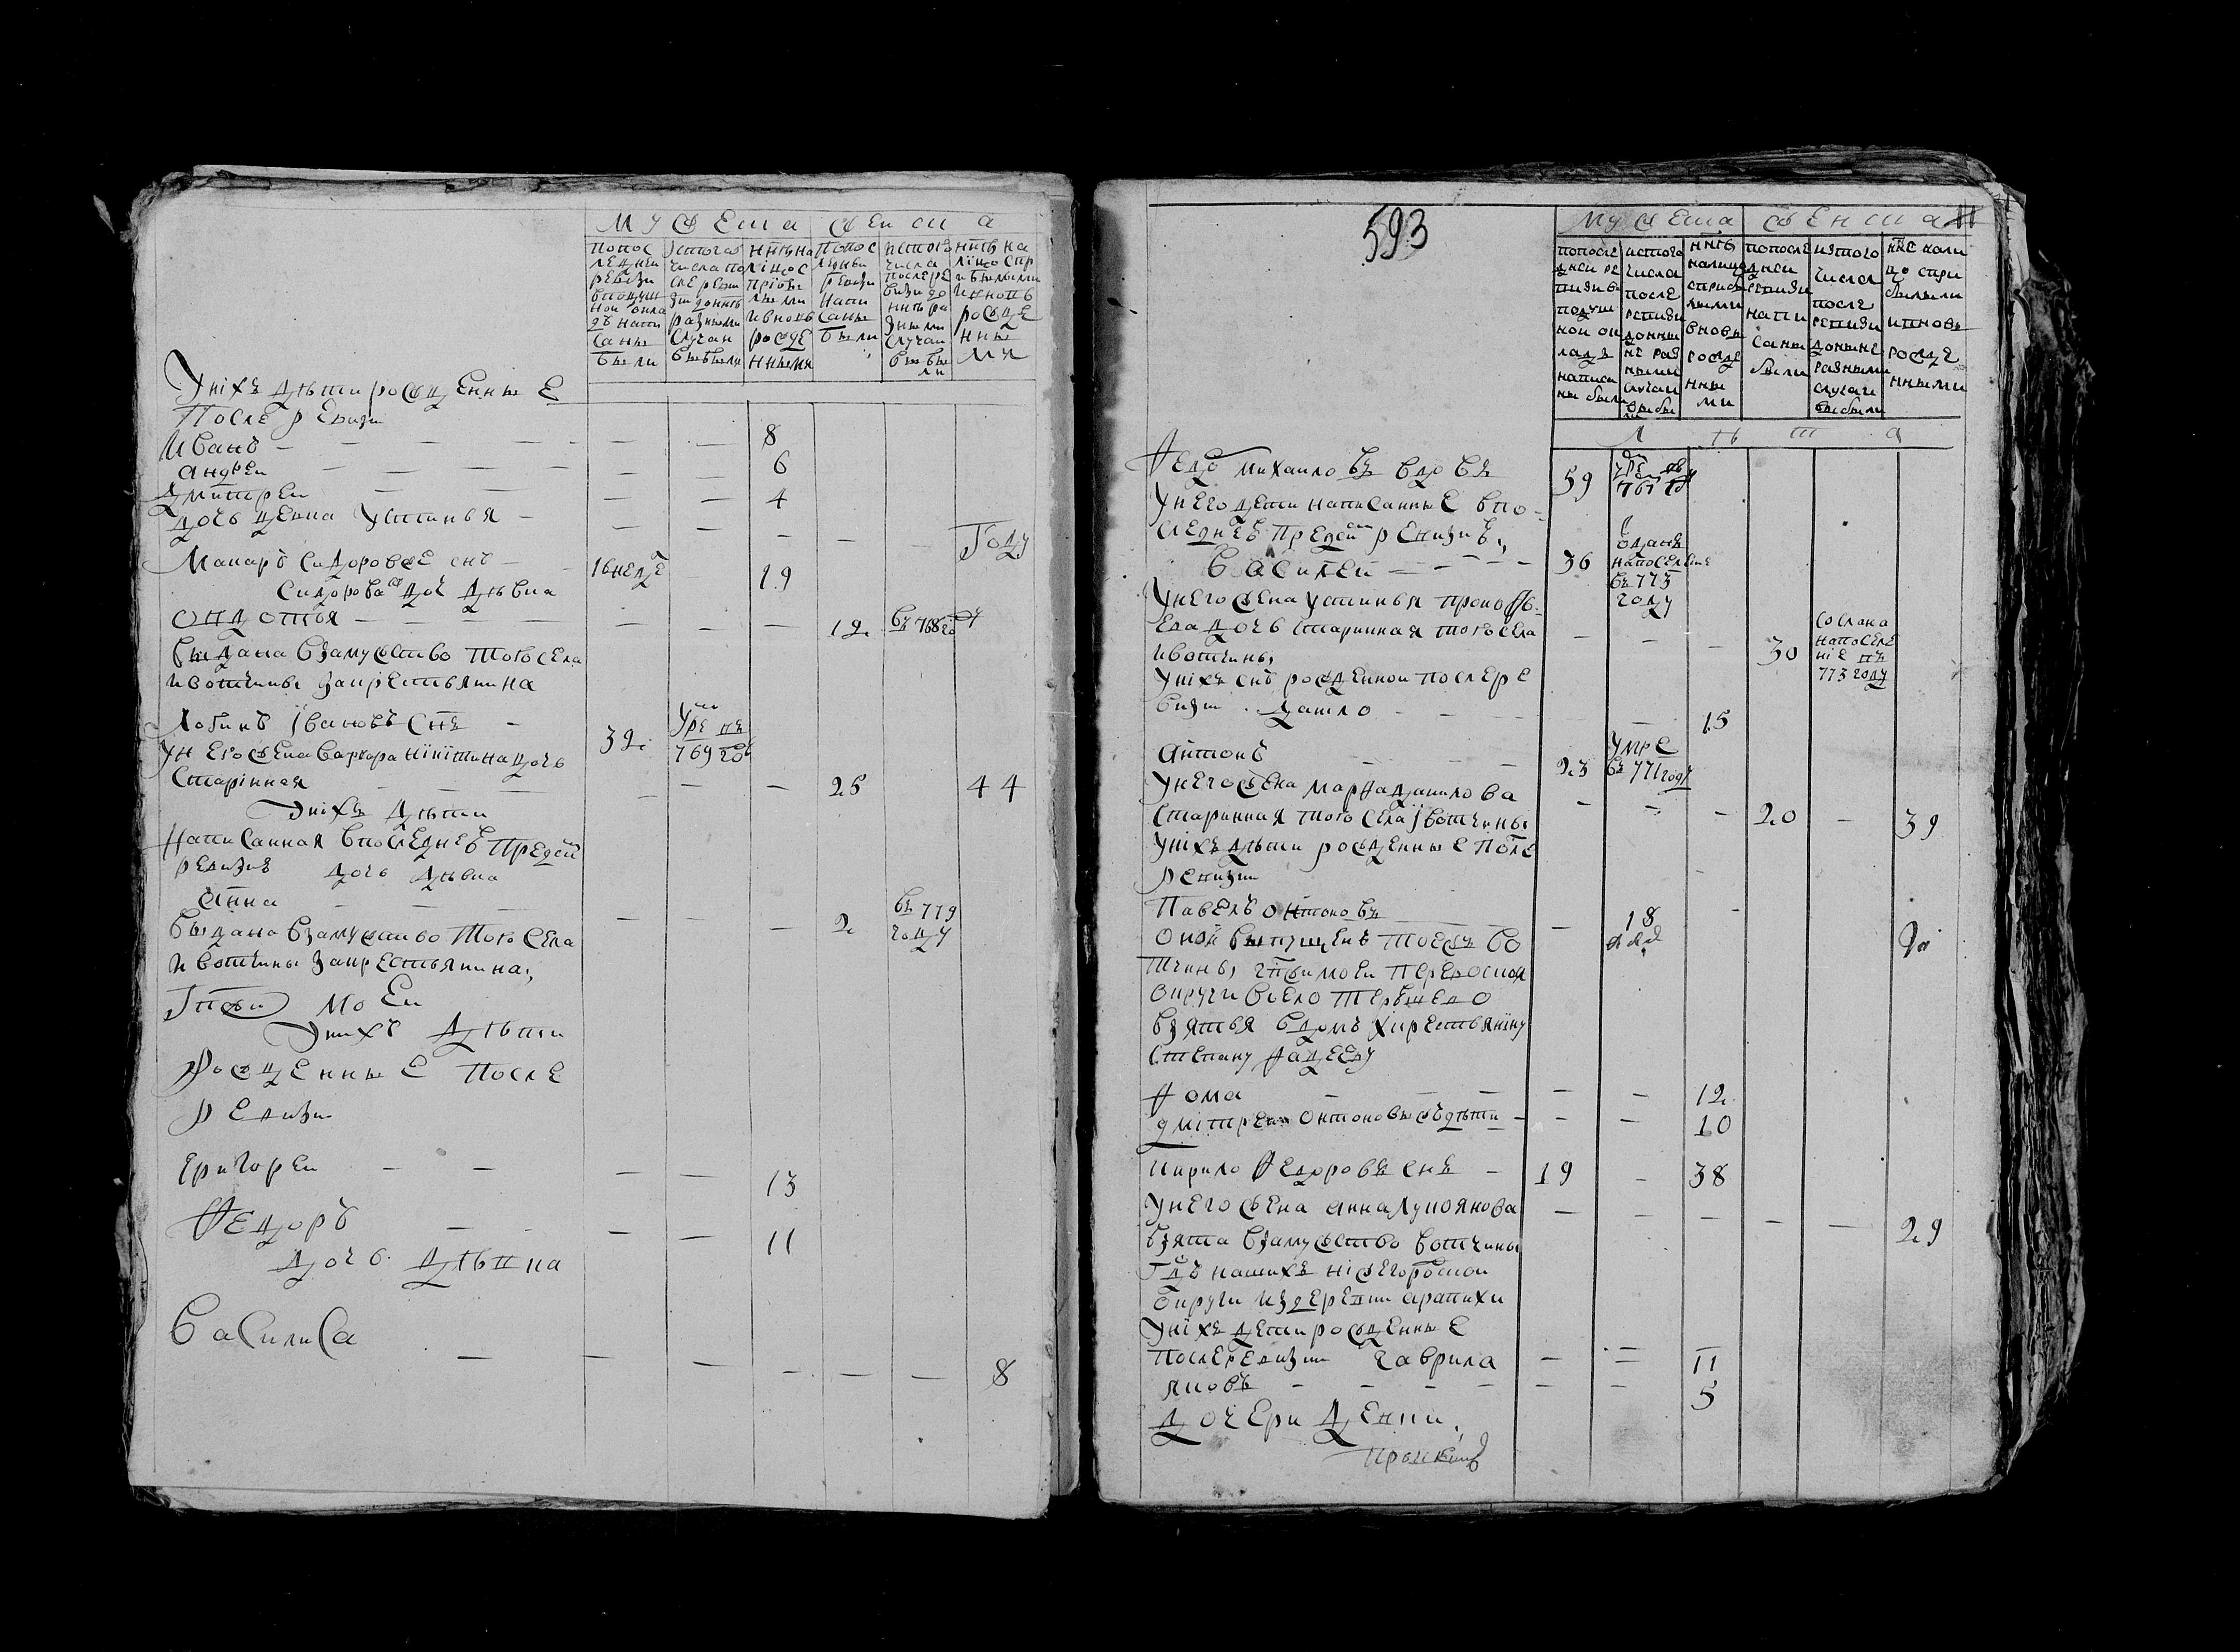 мужеска женска
попос лѣднеи ревизи вподуш нои окла дъ напи саны были
Істогож числа по слѣ реви зи донынѣ разными случаи выбыли
ннѣ на лицо с прибы лыми ивновь рожде нными
попос лѣдней ревизи напи саны были
истого числа послѣ ре визи до ннѣ ра зными случаи выбы ли
ннѣ на лицо спр ибылыми ивновь рожде нны ми
Унихъ дѣти рожденные
Послѣ ревизи
Иванъ — — — — — 8
андреи — — — — — 6
Дмитреи — — — — 4
дочь девка Устинья — — — — — Году
Макаръ Сидоровъ же снъ — 16 недѣ — 19
Сидорова ж доч дѣвка
Овдотья — — — — — — — 12 въ 768 году
выдана взамужство того села
ивотчины закрестьянина
Логинъ Івановъ снъ — 32 умре въ 769 год
Унего жена варвара никитина дочь
Старинная — — — — — — 25 44
Унихъ дѣти
Написанная впоследнеи пред сеи
ревизиї дочь дѣвка
анна — — — — — — 2 въ 779 году
Выдана взамужство того села
ивотчины закрестьянина,
Гпжи моеи
Унихъ дѣти
Рожденные послѣ
ревизи
Григореи — — — — 13
Федоръ — — — 11
Дочь дѣвка
Василиса — — — — — — 8
593
мужеска женска
попослѣ днеи ре визи въ подуш нои ок ладъ написа ны были
истого числа послѣ ревизи донны нѣ раз ными случаи выбы ли
ннѣ налицо сприбы лыми вновь рожде нны ми
попослѣ днеи ревизи напи саны были
изтого числа послѣ ревизи донынѣ разными случаи выбыли
ннѣ нали цо спри былыми ивновь рожде нными
Л ѣ т а
Федо михаиловъ вдовъ 59 умре въ 767 год
Унего дети написанные впо
следнеи пред сеи ревизиї,
Василеи — — — — 36 отданъ напоселение въ 773 году
Унего жена устинья прокофь
ева дочь старинная того села — — — 30 сослана напоселе ние въ 773 году
ивотчины,
Унихъ снъ рожденнои послѣ ре
визи. данило — — — — — 15
Антонъ — — — 23 умре въ 771 году
Унего жена марфа данилова
Старинная того села івотчины — — — 20 — 39
Унихъ дѣти рожденные после
ревизи
Павелъ онтоновъ — 18
онои выпущенъ тоежъ во
тчины гпжи моеи
округи всело
взятья вдомъ ккрестьянину
Степану фадееву
Фома — — — — — 12
дмитреи онтоновы ж дѣти — — — 10
Кирило Федоровъ снъ — 19 — 38
Унего жена анна лукоянова — — — — — 29
взята взамужство вотчины
Гдъ нашихъ нижегородскои
округи издеревни арапихи
Унихъ дети рожденные
послѣ ревизии гаврила — — 11
яковъ — — — — — — 5
Дочери девки,